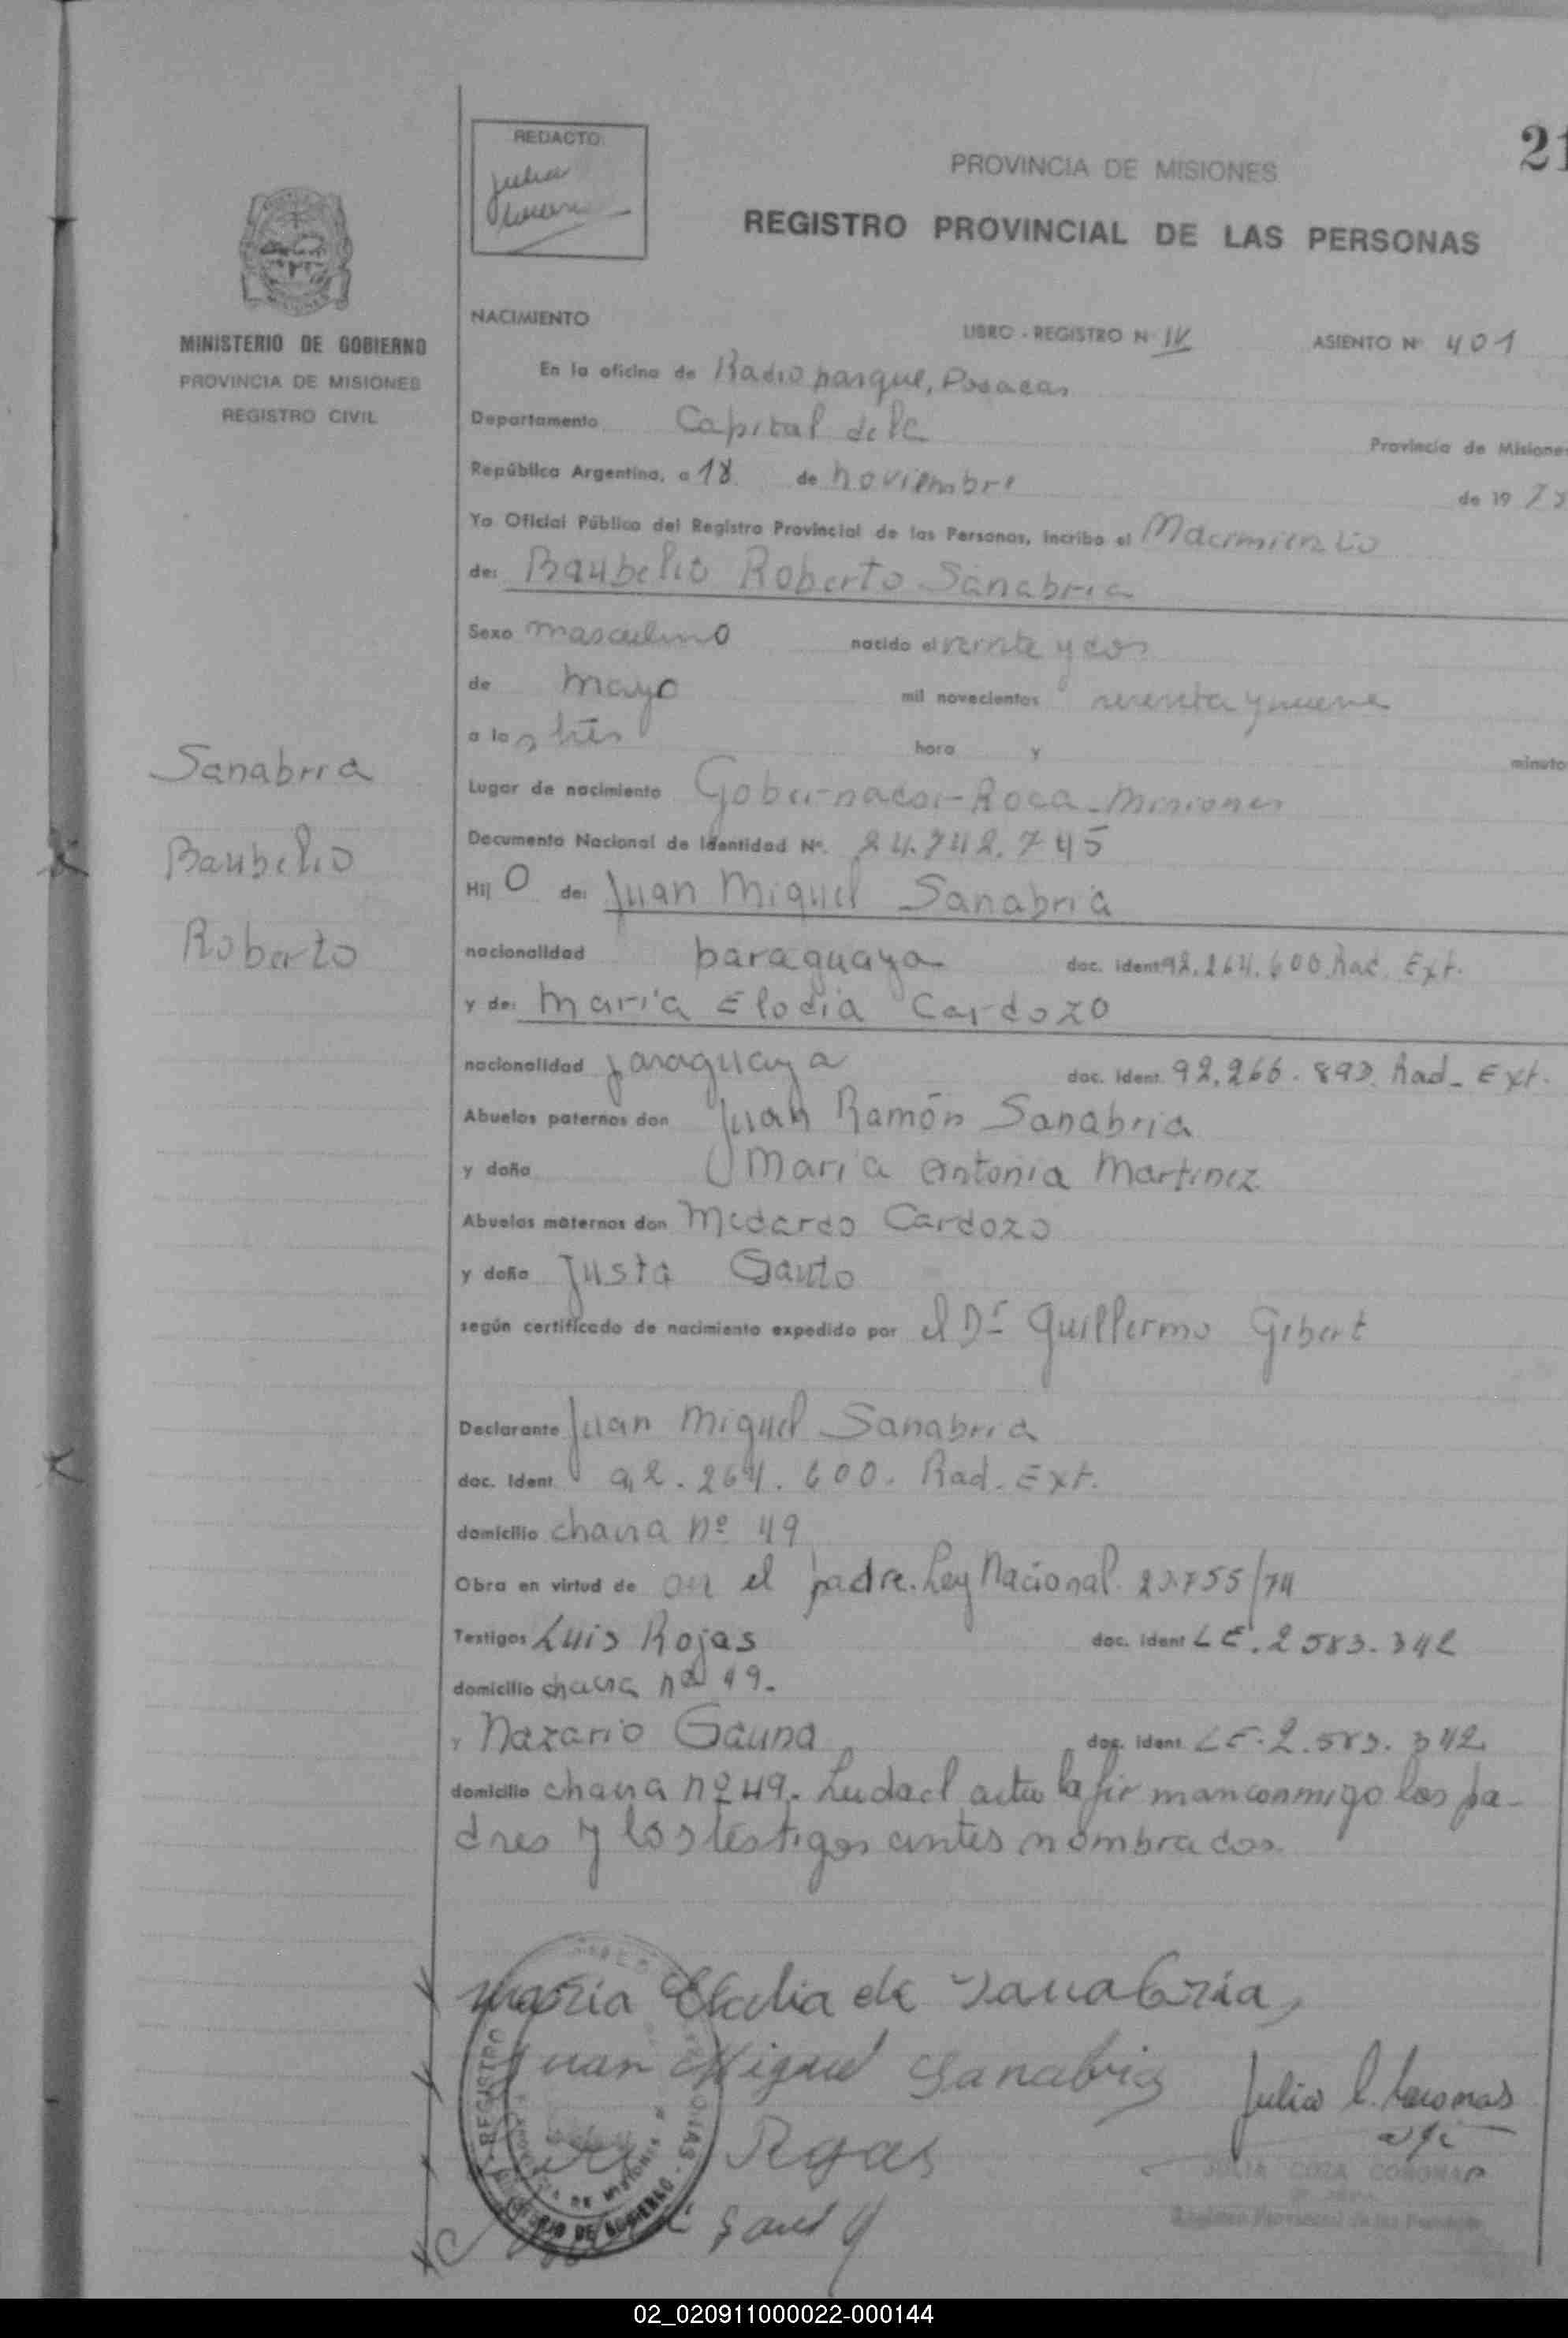 REDACTO:
Julia
21
PROVINCIA DE MISIONES
REGISTRO PROVINCIAL DE LAS PERSONAS
MINISTERIO DE GOBIERNO
PROVINCIA DE MISIONES
REGISTRO CIVIL
NACIMIENTO
LIBRO - REGISTRO Nº IV ASIENTO Nº 401
En la oficina de Radio parque, Posadas
Departamento Capital de la Provincia de Misiones
República Argentina, a 18 de noviembre de 19 78
Yo Oficial Público del Registro Provincial de las Personas, incribo el Nacimiento
de: Baubelio Roberto Sanabria
Sexo masculino nacido el veinte y dos
de mayo mil novecientos setenta y nueve
a las tres hora y minuto
Lugar de nacimiento Gobernador Roca - Misiones
Documento Nacional de Identidad Nº. 24.742.745
Hij o de: Juan Miguel Sanabria
nacionalidad paraguaya doc. ident 92.264.600 Rad. Ext.
y de: María Elodia Cardozo
nacionalidad paraguaya doc. ident. 92.266.893. Rad- Ext.
Abuelos paternos don Juan Ramón Sanabria
y doña María Antonia Martinez
Abuelos maternos don Medardo Cardozo
y doña Justa Gauto
según certificado de nacimiento expedido por el Dr Guillermo Gibert
Declarante Juan Miguel Sanabria
doc. Ident. 92.264.600. Rad. Ext.
domicilio chacra nº 49
Obra en virtud de ser el padre. Ley Nacional 20.755/74
Testigos Luis Rojas doc. ident LE. 2583.342
domicilio chacra nº 49.
y Nazario Gauna doc. ident. LE. 2.583.342
domicilio chacra nº 49. Leida el acta la firman conmigo los pa-
dres y los testigos antes nombrados
Sanabria
Baubelio
Roberto
María Elodia de Sanabria,
Juan Miguel Sanabria
Julia C. Coronas
Rojas
JULIA COZA CORONAS
Registro Provincial de las Personas
REGISTRO
MINISTERIO DE GOBIERNO
02_020911000022-000144